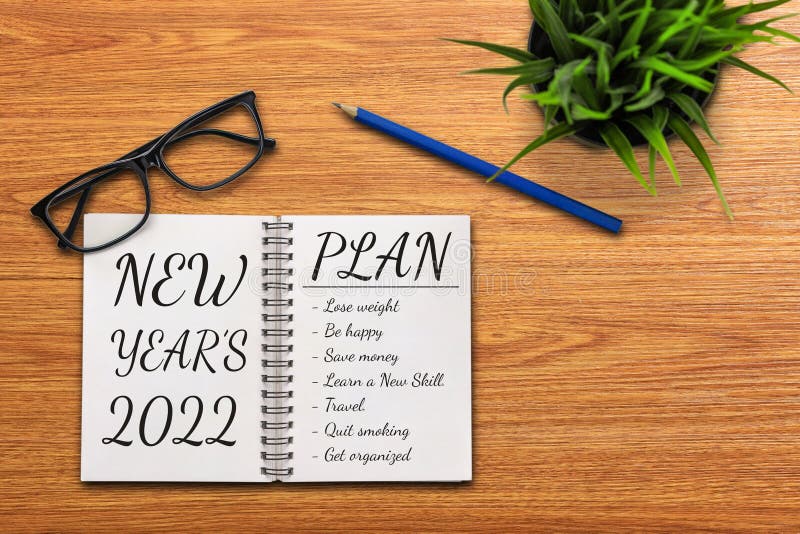 NEW
YEAR'S
2022
PLAN
- Lose weight
- Be happy
- Save money
- Learn a New Skill.
- Travel.
- Quit smoking
- Get organized